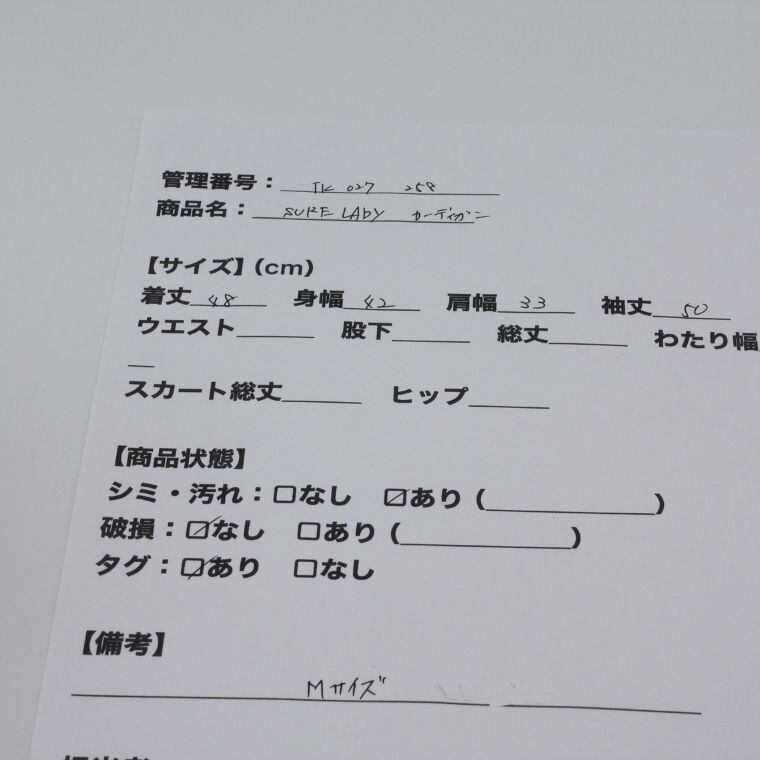 管理番号： TK 027 258
商品名： SURE LADY カーディガン
【サイズ】(cm)
着丈 48 身幅 42 肩幅 33 袖丈 50
ウエスト 股下 総丈 わたり幅
スカート総丈 ヒップ
【商品状態】
シミ・汚れ：□なし ☑あり ( )
破損：☑なし □あり ( )
タグ：☑あり □なし
【備考】
Mサイズ